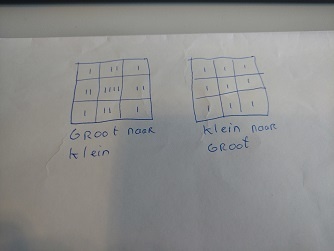 I II I
II IIII II
I II I
GROOT naar
klein
I I I
I I I
I I I
klein naar
GROOT